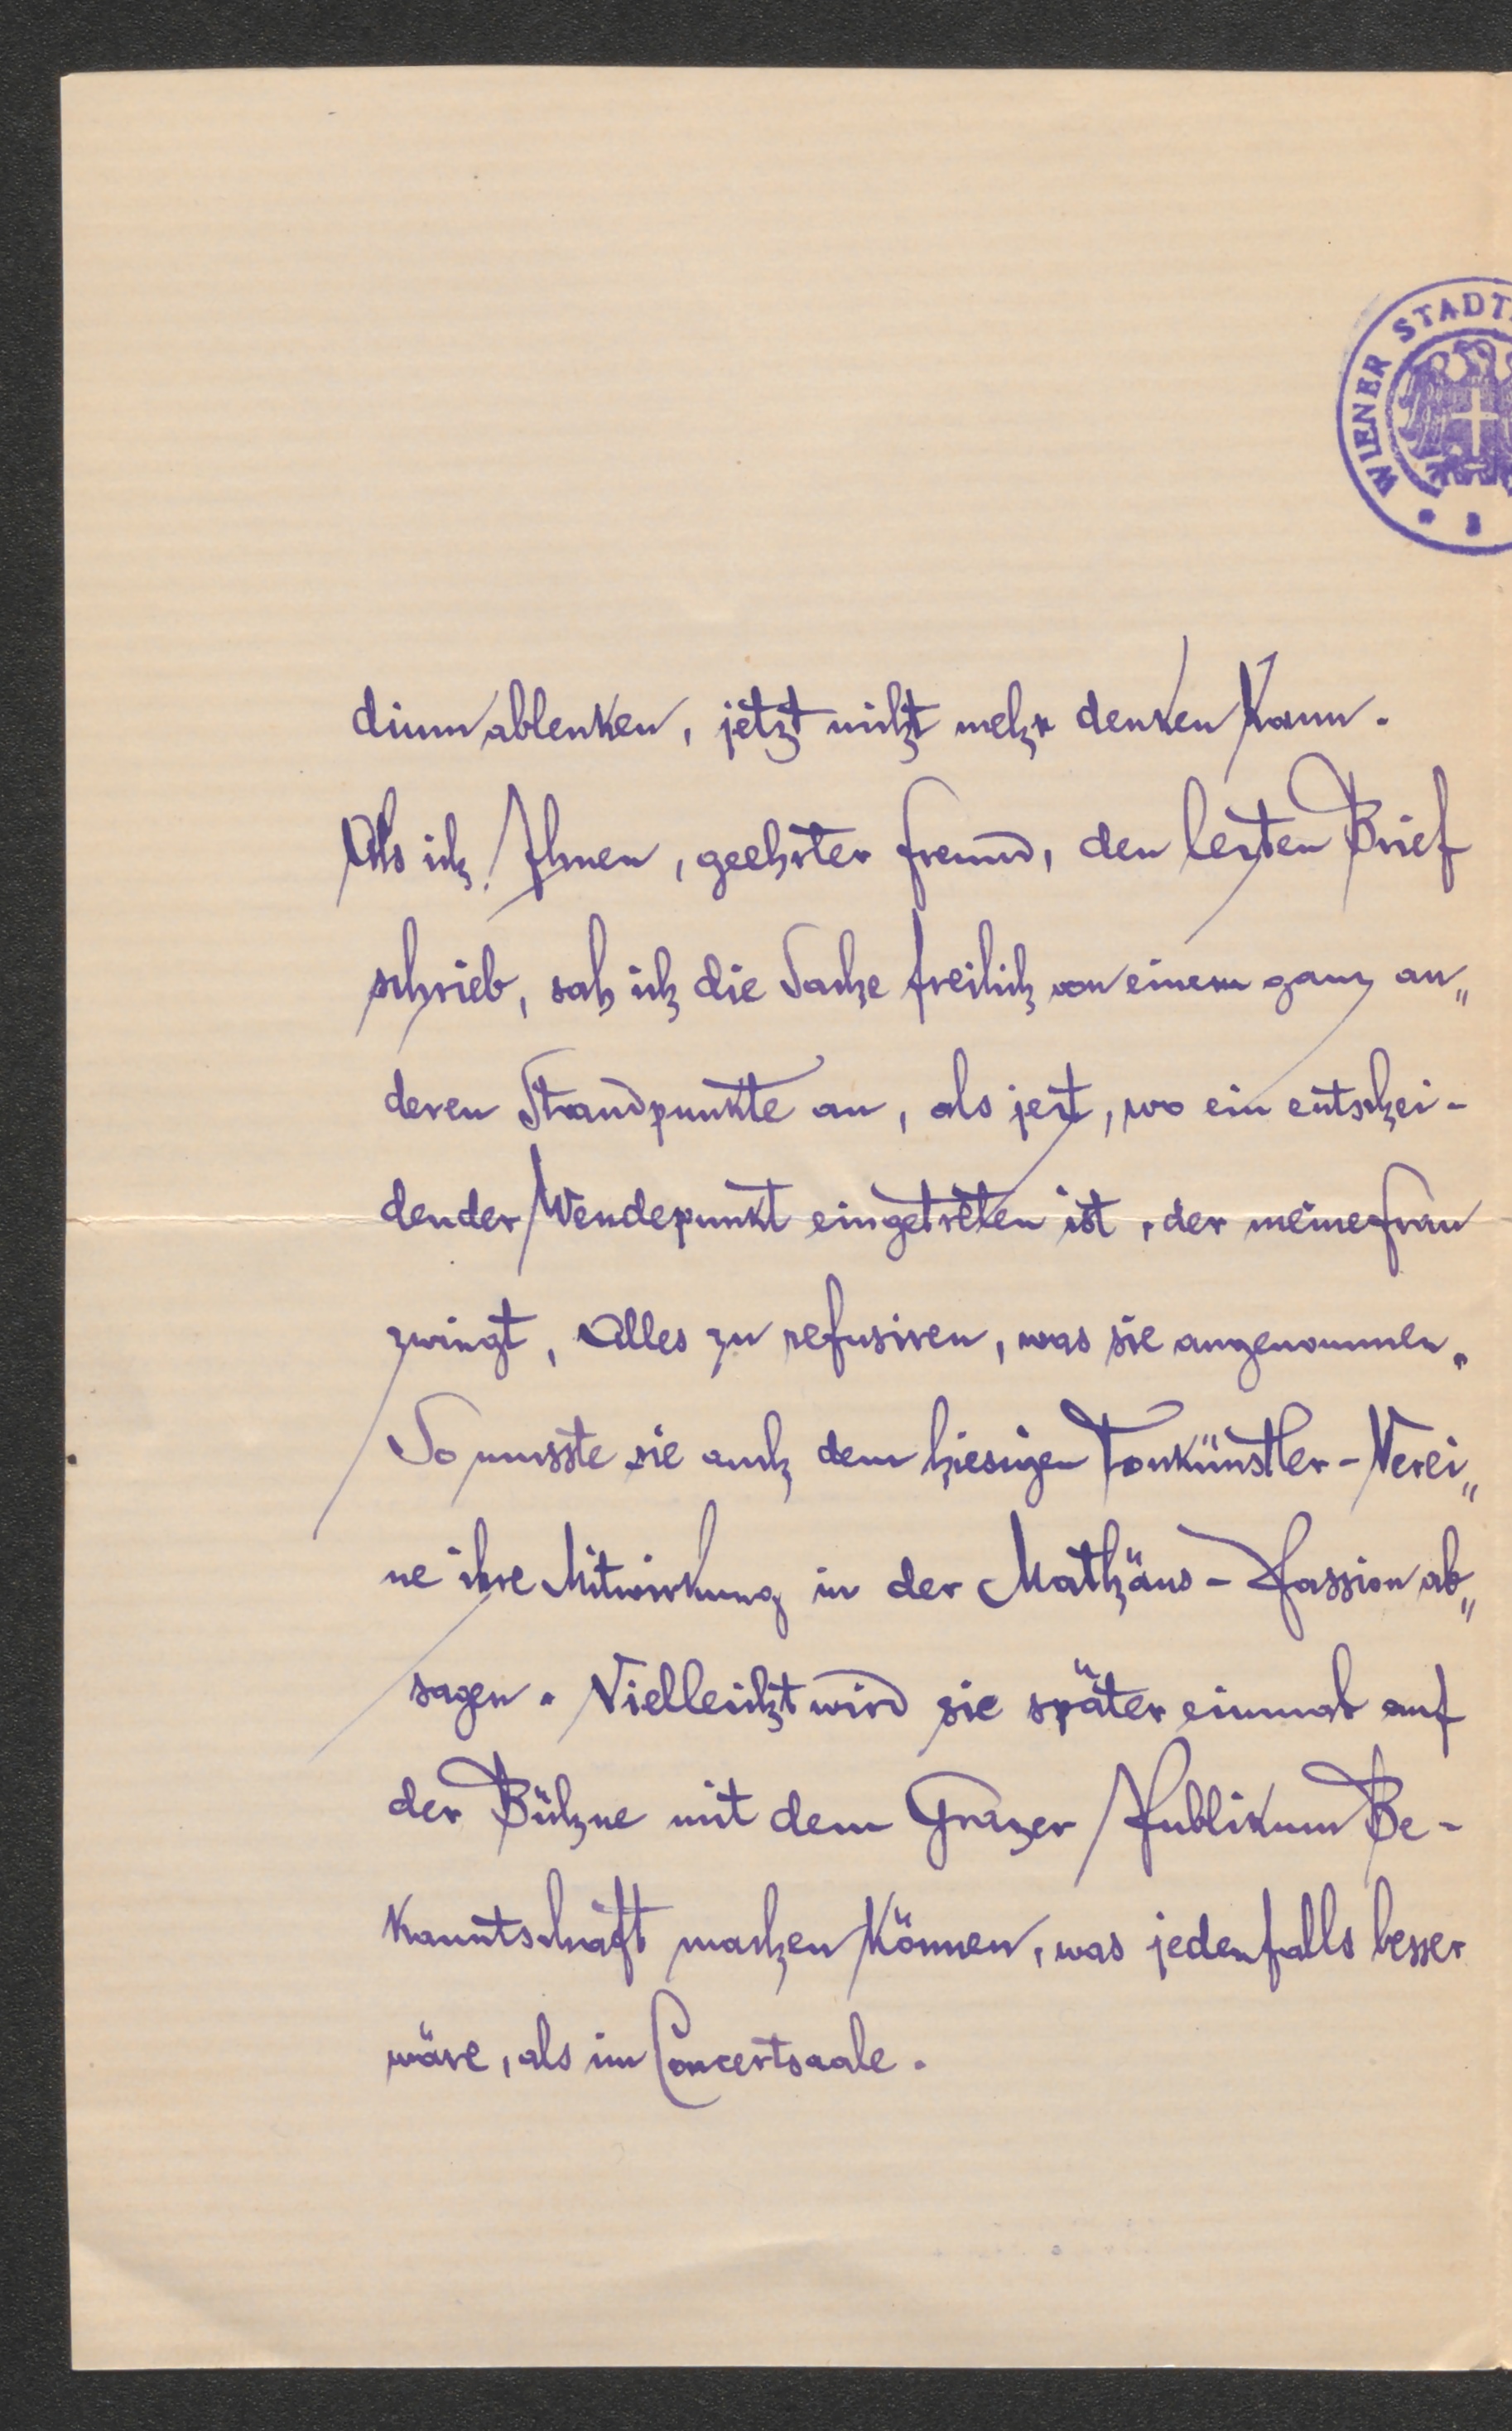 WIENER STADT
dium ablenken, jetzt nicht mehr denken kann.
Als ich Ihnen, geehrter Freund, den letzten Brief
schrieb, sah ich die Sache freilich von einem ganz an„
deren Standpunkte an, als jetzt, wo ein entschei-
dender Wendepunkt eingetreten ist, der meine Frau
zwingt, Alles zu refusiren, was sie angenommen.
So musste sie auch dem hiesigen Tonkünstler-Verei„
ne ihre Mitwirkung in der Mathäus-Passion ab„
sagen. Vielleicht wird sie später einmal auf
der Bühne mit dem Grazer Publikum Be-
kanntschaft machen können, was jedenfalls besser
wäre, als im Concertsaale.